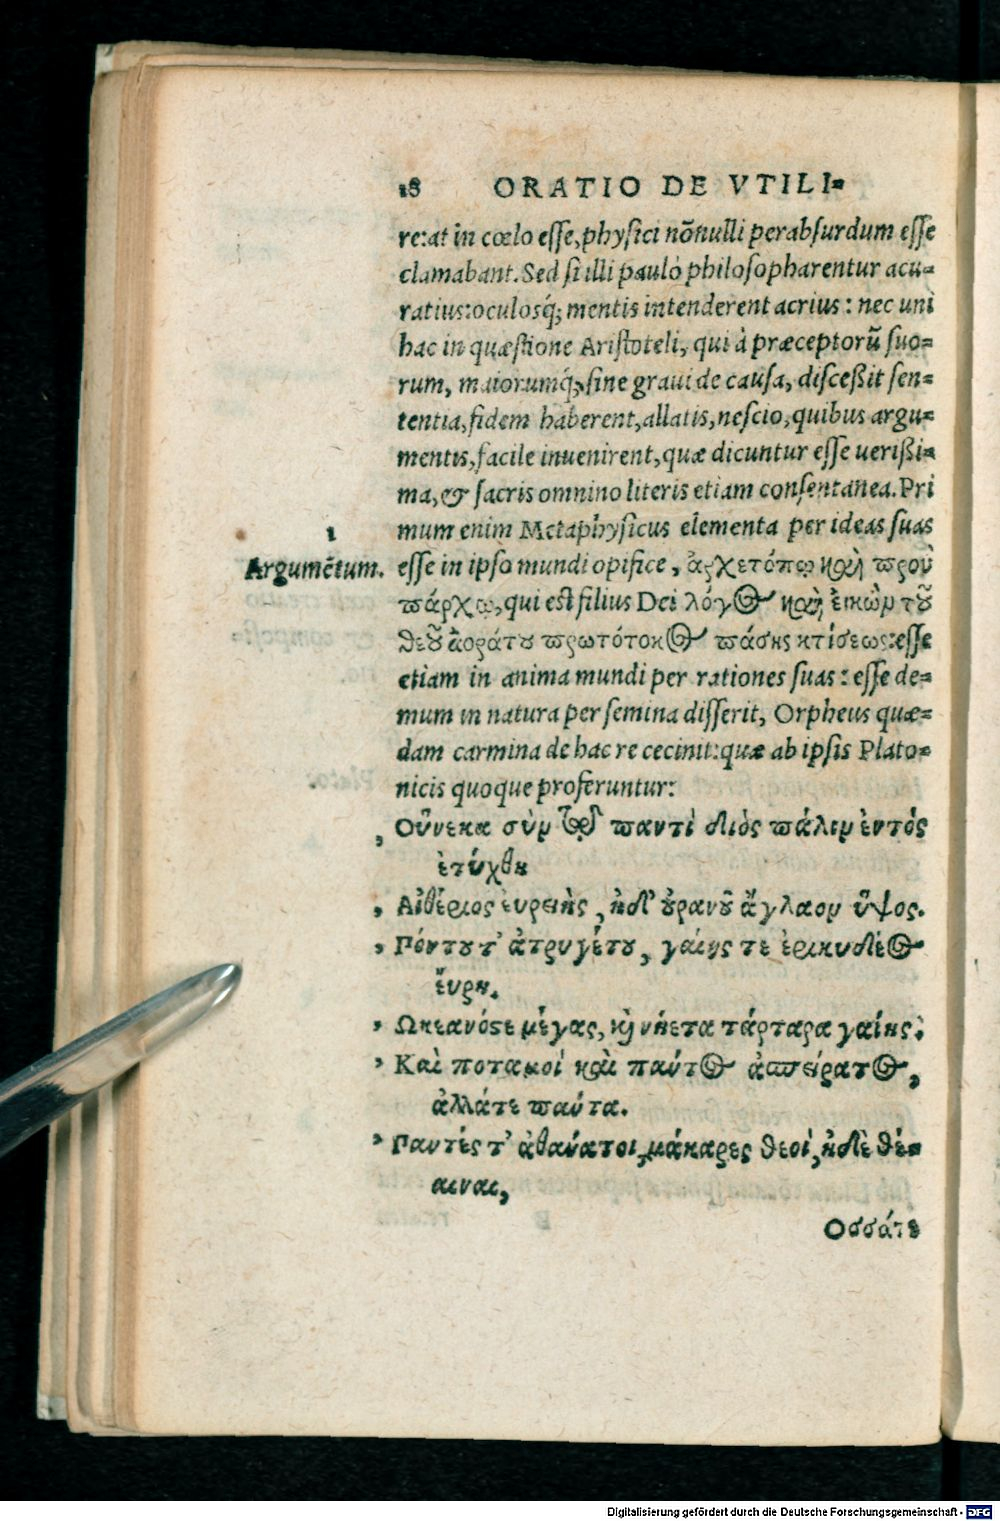 18 ORATIO DE VTILI=
re:at in cœlo esse, physici nōnulli perabsurdum esse
clamabant. Sed si illi pauló philosopharentur acu=
ratius: oculosq́; mentis intenderent acrius: nec uni
hac in quæstione Aristoteli, qui à præceptorũ suo=
rum, maiorumq́;, sine graui de causa, discessit sen=
tentia, fidem haberent, allatis, nescio, quibus argu=
mentis, facile inuenirent, quæ dicuntur esse uerißi=
ma, & sacris omnino literis etiam consentanea. Pri
mum enim Metaphysicus elementa per ideas suas
1
Argumẽtum.
esse in ipso mundi opifice, ἀρχετόπῳ καὶ προὺ
πάρχῳ, qui est filius Dei λόγος καὶ, ἐικὼν τοῦ
θεοῦ ἀοράτου πρωτότοκος πάσης κτίσεως: esse
etiam in anima mundi per rationes suas: esse de=
mum in natura per semina disserit, Orpheus quæ=
dam carmina de hac re cecinit: quæ ab ipsis Plato=
nicis quoque proferuntur:
, Οὕνεκα σὺν τῷ παντὶ διὸς πάλιν ἐντός
ἐτύχθη
, Αἰθέριος ἐυρείης, ἠδ' οὐρανοῦ ἄγλαον ὕψος.
, Πόντου τ' ἀτρυγέτου, γαίης τε ἐρικυδέος
ἔυρη.
, Ωκεανόστε μέγας, καὶ νήετα τάρταρα γαίης.
, Καὶ ποταμοί καὶ πόντος ἀπείρατος,
ἀλλάτε πάντα.
, Παντές τ' ἀθανάτοι, μάκαρες θεοί, ἠδὲ θέ=
αιναι,
Οσσάτε
Digitalisierung gefördert durch die Deutsche Forschungsgemeinschaft - DFG